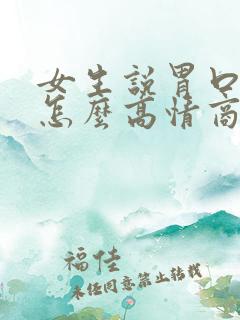 女生說胃口
怎麼高情商
福佳
未经同意禁止转载